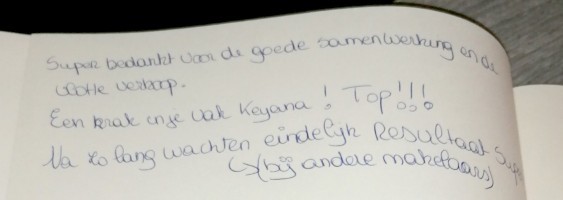 Super bedankt voor de goede samenwerking en de
vlotte verkoop.
Een knak in je vak Keyana! Top!!!
Na zo lang wachten eindelijk Resultaat Super
(bij andere makelaars)